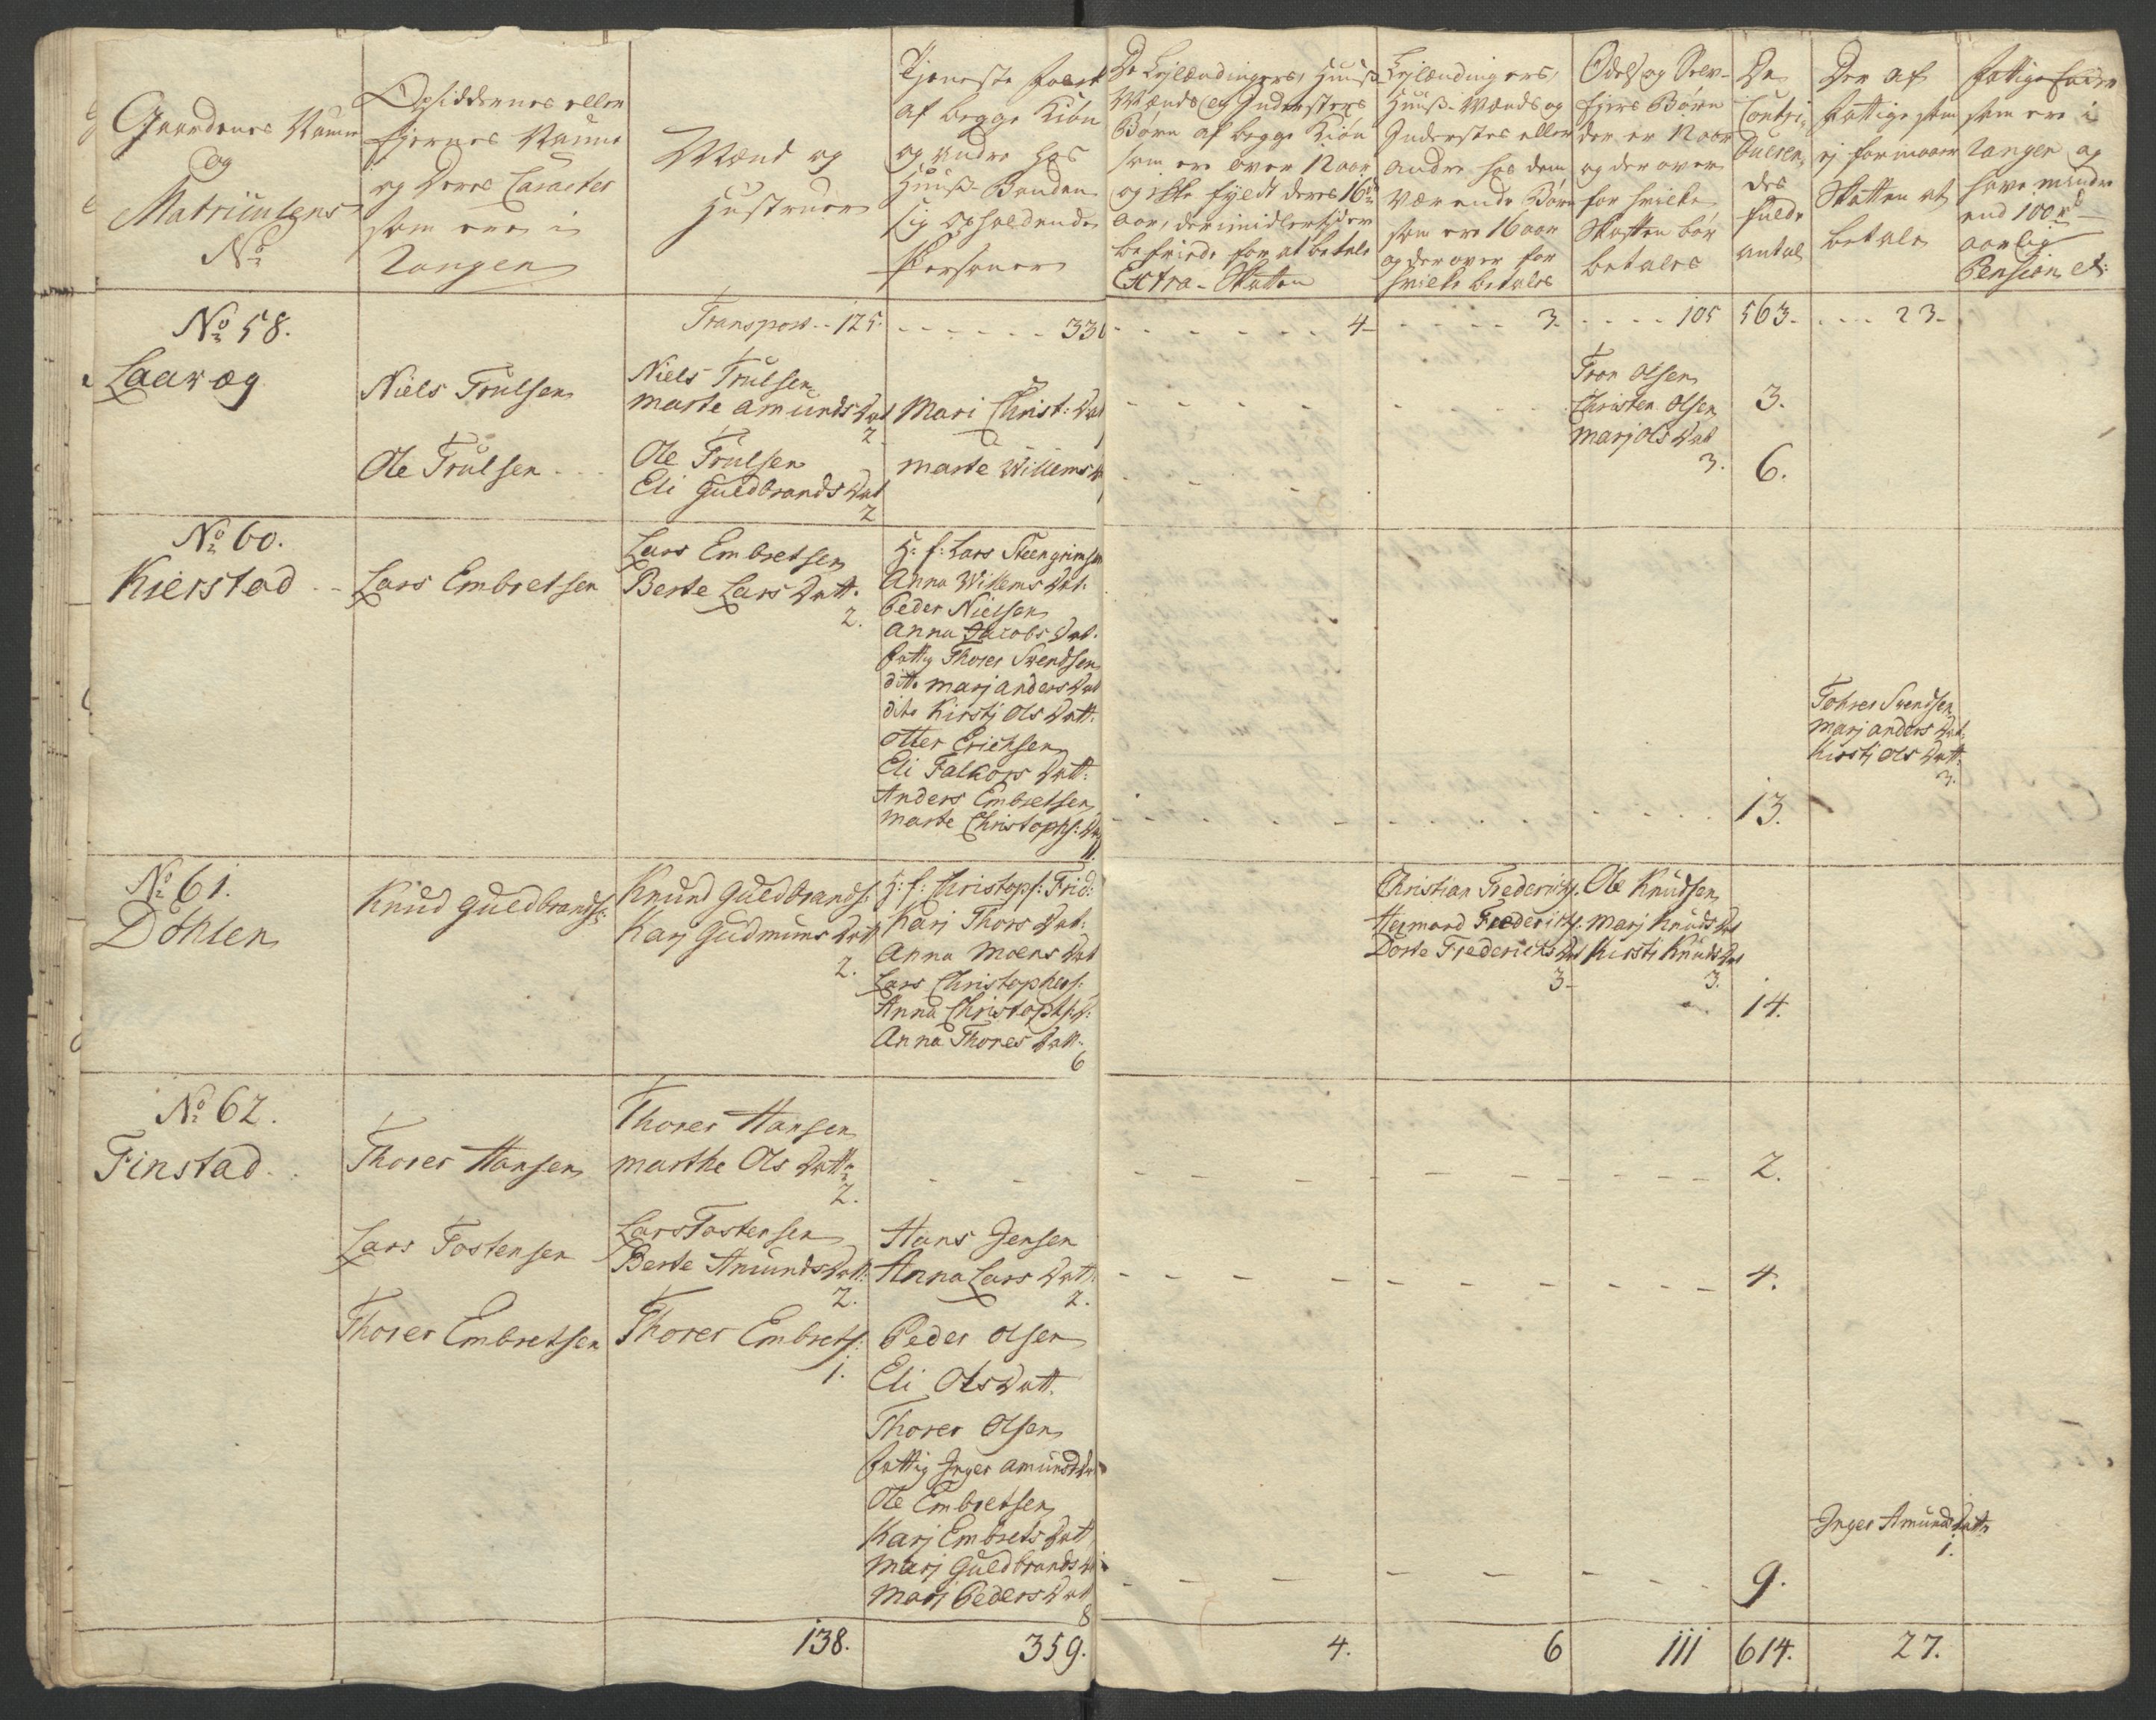 Gaardenes Nafne
og
Matriculens
No
Opsiddernes eller
Ejernes Nafne
og Deres Caracter
som ere i
Rangen
Mænd og
Hustruer
Tjeneste Folck
af begge Kiøn
og andre hos
Huus-Bonden
sig opholdende
Persohner
De Lejlændingers, Huus-
Mænds og Inderstes
Børn af begge Kiøn
som ere over 12 aar
og ikke fyldt deres 16de
aar, der imidlertid ere
befriede for at betale
Extra-Skatten
Lejlændingers,
Huus-Mænds og
Inderstes eller
andre hos dem
værende Børn
som ere 16 aar
og der over for
hvilke betales
Odels og Selv-
Ejers Børn
der er 12 aar
og der over
for hvilke
Skatten bør
betales
De
Contri-
buerendes
fulde
antal
Der af
Fattige som
ej formaaer
Skatten at
betale
Fattige
som ere i
Rangen og
have mindre
end 100 rd
aarlig
Pension etc:
Transport - 125. - - - - - - 330 - - - - - - - 4 - - - - - 3. - - - - 105 563. - - - 23.
No 58.
Laaræg
Niels Trulsen
Niels Trulsen
Marte Amunds Dat
2
Mari Christ: Dat
1
3.
Ole Trulsen
Ole Trulsen
Eli Guldbrands Dat
2
Marte Willems D
1
Tron Olsen
Christen Olsen
Marj Ols Dat
3.
6.
No 60.
Kierstad
Lars Embretsen
Lars Embretsen
Berte Lars Datt.
2.
H: f: Lars Steengrimsen
Anna Willems Dat.
Peder Nielsen
Anna Jacobs Dat.
fattig Thorer Svendsen
ditto Marj Anders Dat
dito Kirstj Ols Datt.
Otter Erichsen
Eli Falkors Datt:
Anders Embretsen
Marte Christophs: Dat
11
13.
Tohrer Svendsen
Marj Anders Dat.
Kirstj Ols Datt:
3.
No 61.
Döhlen
Knud Guldbrands:
Knund Guldbrands:
Karj Gudmuns Datt
2.
H: f: Christoph: Frid:
Karj Thors Dat:
Anna Moens Dat
Lars Christophers:
Anna Christophs:
Anna Thores Datt.
6
Christian Frederichs.
Hermand Frederichs.
Dorte Frederichs Dat
3
Ole Knudsen
Marj Knuds Dat
Kirsti Knuds Dat
3.
14.
No 62.
Finstad
Thorer Hansen
Thorer Hansen
Marthe Ols Datt.
2.
2.
Lars Tostensen
Lars Tostensen
Berte Amunds Datt:
2.
Hans Jensen
Anna Lars Datt.
2.
4.
Thorer Embretsen
Thorer Embrets:
1.
Peder Olsen
Eli Ols Datt.
Thorer Olsen
fattig Inger Amunds Dat
Ole Embretsen
Karj Embrets Datt
Marj Guldbrands Dat
Marj Peders Datt
8
9.
Inger Amunds Datt.
1.
138. 359. 4. 6 111 614. 27.